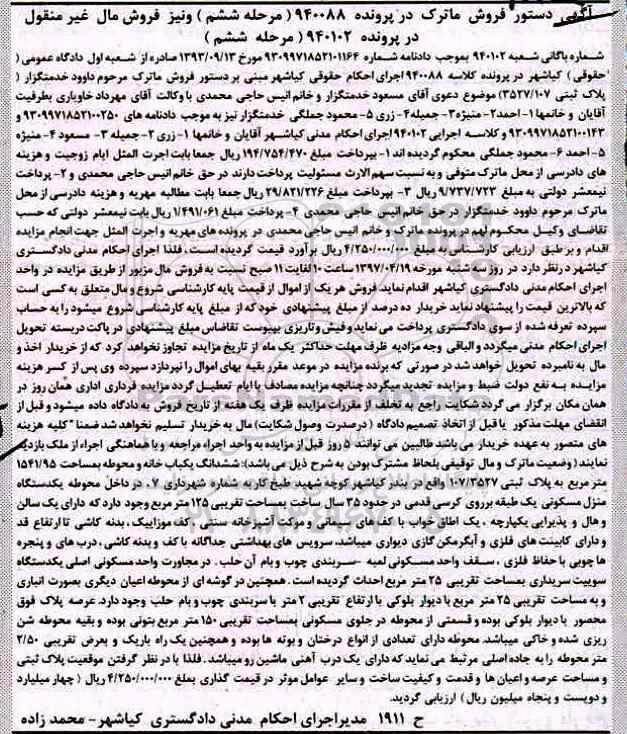 آگهی دستور فروش ماترک در پرونده ۹۴۰۰۸۸ (مرحله ششم) ونیز فروش مال غیر منقول
در پرونده ۹۴۰۱۰۲ (مرحله ششم)
شماره باگانی شعبه ۹۴۰۱۰۲ بموجب دادنامه شماره ۹۳۰۹۹۷۱۸۵۲۱۰۱۱۶۴ مورخ ۱۳۹۳/۰۹/۱۳ صادره از شعبه اول دادگاه عمومی (
حقوقی) کیاشهر در پرونده کلاسه ۹۴۰۰۸۸ اجرای احکام حقوقی کیاشهر مبنی بر دستور فروش ماترک مرحوم داوود خدمتگزار (
پلاک ثبتی ۳۵۲۷/۱۰۷) موضوع دعوی آقای مسعود خدمتگزار و خانم انیس حاجی محمدی با وکالت آقای مهرداد خاویاری بطرفیت
آقایان و خانمها ۱-احمد۲-منیژه۳-جمیله۴-زری ۵-محمود جملگی خدمتگزار نیز به موجب دادنامه های ۹۳۰۹۹۷۱۸۵۲۱۰۰۲۵۰ و
۹۳۰۹۹۷۱۸۵۲۱۰۰۱۴۳ وکلاسه اجرایی ۹۴۰۱۰۲ اجرای احکام مدنی کیاشهر آقایان و خانمها ۱-زری ۲-جمیله ۳- مسعود ۴-منیژه
۵-احمد ۶-محمود جملگی محکوم گردیده اند ۱-بپرداخت مبلغ ۱۹۴/۷۵۴/۴۷۰ ریال جمعا بابت اجرت المثل ایام زوجیت و هزینه
های دادرسی از محل ماترک متوفی و به نسبت سهم الارث مسئولیت پرداخت دارند در حق خانم انیس حاجی محمدی و ۲-پرداخت
نیمعشر دولتی به مبلغ ۹/۷۳۷/۷۲۳ ریال ۳- بپرداخت مبلغ ۲۹/۸۲۱/۲۲۶ ریال جمعا بابت مطالبه مهریه و هزینه دادرسی از محل
ماترک مرحوم داوود خدمتگزار در حق خانم انیس حاجی محمدی ۴- پرداخت مبلغ ۱/۴۹۱/۰۶۱ ریال بابت نیمعشر دولتی که حسب
تقاضای وکیل محکوم لهم در پرونده ماترک و خانم انیس حاجی محمدی در پرونده های مهریه و اجرت المثل جهت انجام مزایده
اقدام و بر طبق ارزیابی کارشناس به مبلغ ۴/۲۵۰/۰۰۰/۰۰۰ ریال برآورد قیمت گردیده است، فلذا اجرای احکام مدنی دادگستری
کیاشهر در نظر دارد در روز سه شنبه مورخه ۱۳۹۷/۰۴/۱۹ ساعت ۱۰ لغایت ۱۱ صبح نسبت به فروش مال مزبور از طریق مزایده در واحد
اجرای احکام مدنی دادگستری کیاشهر اقدام نماید. فروش هر یک از اموال از قیمت پایه کارشناسی شروع و مال متعلق به کسی است
که بالاترین قیمت را پیشنهاد نماید خریدار ده درصد از مبلغ پیشنهادی خود که از مبلغ پایه کارشناسی شروع میشود را به حساب
سپرده تعرفه شده از سوی دادگستری پرداخت می نماید و فیش واریزی بپیوست تقاضاس مبلغ پیشنهادی در پاکت دربسته تحویل
اجرای احکام مدنی میگردد و الباقی وجه مزادیه ظرف مهلت حداکثر یک ماه از تاریخ مزایده تجاوز نخواهد کرد که از خریدار اخذ و
مال به نامبرده تحویل خواهد شد در صورتی که برنده مزایده در موعد مقرر بقیه بهای اموال را نپردازد سپرده وی پس از کسر هزینه
مزایده به نفع دولت ضبط و مزایده تجدید میگردد چنانچه مزایده مصادف با ایام تعطیل گردد مزایده فردای اداری همان روز در
همان مکان برگزار می گردد شکایت راجع به تخلف از مقررات مزایده ظرف یک هفته از تاریخ فروش به دادگاه داده میشود و قبل از
انقضای مهلت مذکور یا قبل از اتخاذ تصمیم دادگاه (درصدرت وصول شکایت) مال به خریدار تسلیم نخواهد شد ضمنا" کلیه هزینه
های متصور به عهده خریدار می باشد طالبین می توانند ۵ روز قبل از مزایده به واحد اجراء مراجعه و با هماهنگی اجراء از ملک بازدید
نمایند (وضعیت ماترک و مال توقیفی بلحاظ مشترک بودن به شرح ذیل می باشد): ششدانگ یکباب خانه و محوطه بمساحت ۱۵۴۱/۹۵
متر مربع به پلاک ثبتی ۱۰۷/۳۵۲۷ واقع در بندر کیاشهر کوچه شهید طبخ کار به شماره شهرداری ۷. در داخل محوطه یکدستگاه
منزل مسکونی یک طبقه برروی کرسی قدمی در حدود ۳۵ سال ساخت بمساحت تقریبی ۱۲۵ متر مربع وجود دارد که دارای یک سالن
و هال و پذیرایی یکپارچه، یک اطاق خواب با کف های سیمانی و موکت آشپزخانه سنتی، کف موزاییک، بدنه کاشی تا ارتفاع قد
و دارای کابینت های فلزی و آبگرمکن گازی دیواری میباشد، سرویس های بهداشتی جداگانه با کف و بدنه کاشی، درب های و پنجره
ها چوبی با حفاظ فلزی، سقف واحد مسکونی لمبه -سربندی چوب و بام آن حلب. در مجاورت واحد مسکونی اصلی یکدستگاه
سوییت سریداری بمساحت تقریبی ۲۵ متر مربع احداث گردیده است. همچنین در گوشه ای از محوطه اعیان دیگری بصورت انباری
و به مساحت تقریبی ۲۵ متر مربع با دیوار بلوکی با ارتفاع تقریبی ۲ متر با سربندی چوب و بام حلب وجود دارد. عرصه پلاک فوق
محصور با دیوار بلوکی بوده و قسمتی از محوطه در جلوی مسکونی بمساحت تقریبی ۱۵۰ متر مربع بتونی بوده و بقیه محوطه شن
ریزی شده و خاکی میباشد. محوطه دارای تعدادی از انواع درختان و بوته ها بوده و همچنین یک راه باریک و بعرض تقریبی ۲/۵۰
متر محوطه را به جاده اصلی مرتبط می نماید که دارای یک درب آهنی ماشین رو میباشد. فلذا با در نظر گرفتن موقعیت پلاک ثبتی
و مساحت عرصه و اعیان ها و قدمت و کیفیت ساخت و سایر عوامل موثر در قیمت گذاری بمبلغ ۴/۲۵۰/۰۰۰/۰۰۰ ریال (چهار میلیارد
و دویست و پنجاه میلیون ریال) ارزیابی گردید.
ح ۱۹۱۱ مدیر اجرای احکام مدنی دادگستری کیاشهر- محمد زاده